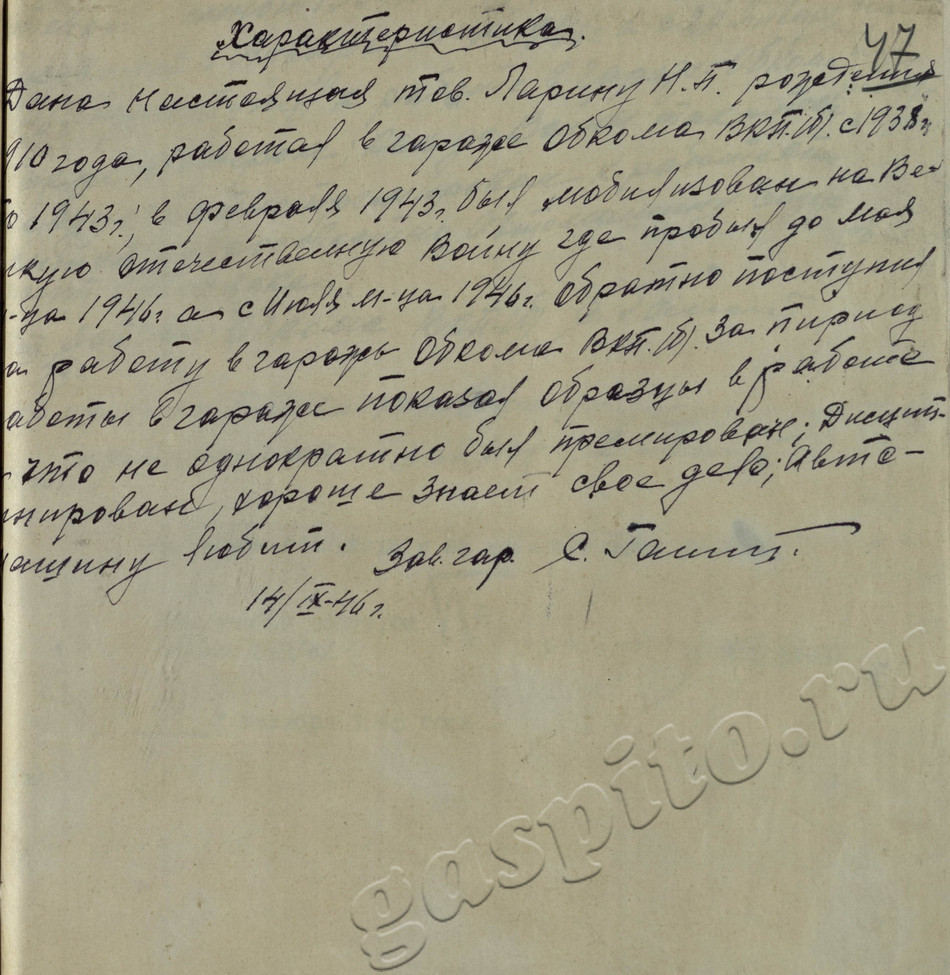 Характеристика.
47
Дана настоящая тов. Ларину Н.П. рождения
910 года, работал в гараже Обкома ВКП.(б). с 1938 г.
по 1943 г., в февраля 1943 г. был мобилизован на Ве-
икую отечественную войну где пробыл до мая
-ца 1946 г. а с Июля м-ца 1946 г. обратно поступил
а работу в гаражь Обкома ВКП.(б). За пириод
аботы в гараже показал образцы в работе
что не однократно был премирован; Дисцип-
нирован, хороше знает свое дело; Авто-
ашину любит. Зав. гар.
14/IX-46 г.
gaspito.ru